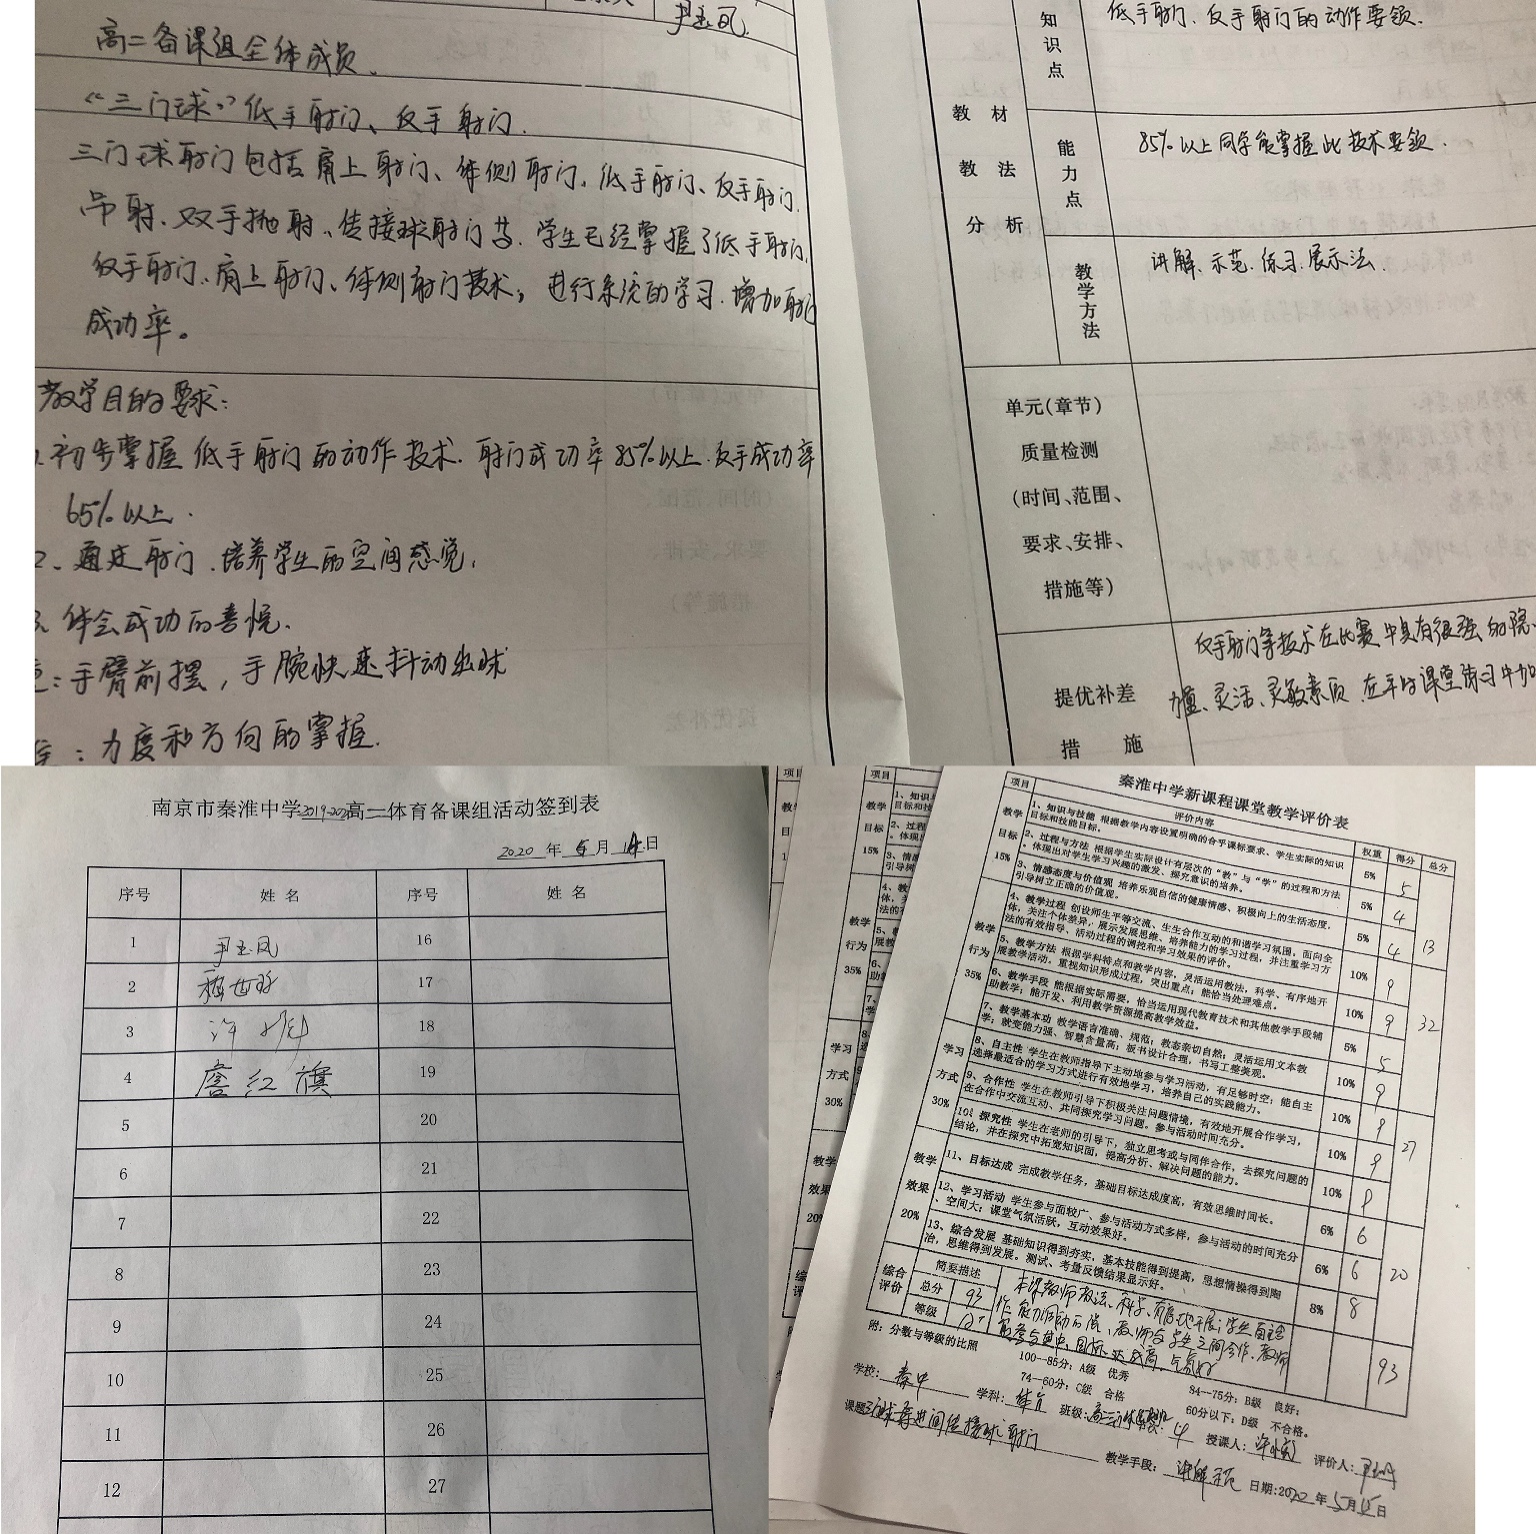 尹玉凤
高二备课组全体成员、
“三门球” 低手射门、反手射门.
三门球射门包括肩上射门、体侧射门、低手射门、反手射门.
吊射、双手抛射、传接球射门等. 学生已经掌握了低手射门,
反手射门、肩上射门、体侧射门技术, 进行系统的学习. 增加射门
成功率。
教学目的要求:
1. 初步掌握 低手射门的动作技术. 射门成功率85%以上. 反手成功率
65%以上.
2、通过射门. 培养学生的空间感觉,
3、体会成功的喜悦.
:手臂前摆, 手腕快速抖动出球
: 力度和方向的掌握.
知识点
低手射门、反手射门的动作要领.
教 材
教 法
分 析
能力点
85%以上同学能掌握此技术要领.
教学方法
讲解、示范、练习、展示法.
单元(章节)
质量检测
(时间、范围、
要求、安排、
措施等)
提优补差
措 施
反手射门等技术在比赛中具有很强的隐
力量、灵活、灵敏素质. 在平时课堂练习中加
南京市秦淮中学2019-202高二体育备课组活动签到表
2020 年 5 月 日
序号 姓 名 序号 姓 名
1 尹玉凤 16
2 17
3 许 18
4 詹红旗 19
5 20
6 21
7 22
8 23
9 24
10 25
11 26
12 27
秦淮中学新课程课堂教学评价表
项目 评价内容 权重 得分 总分
教学
目标
15%
1、知识与技能 根据教学内容设置明确的合乎课标要求、学生实际的知识
目标和技能目标。 5% 5
2、过程与方法 根据学生实际设计有层次的“教”与“学”的过程和方法
。体现出对学生学习兴趣的激发、探究意识的培养。 5% 4
3、情感态度与价值观 培养乐观自信的健康情感、积极向上的生活态度,
引导树立正确的价值观。 5% 4 13
教学
行为
35%
4、教学过程 创设师生平等交流、生生合作互动的和谐学习氛围,面向全
体,关注个体差异,展示发展思维、培养能力的学习过程,并注重学习方
法的有效指导、活动过程的调控和学习效果的评价。 10% 9
5、教学方法 根据学科特点和教学内容,灵活运用教法,科学、有序地开
展教学活动。重视知识形成过程,突出重点;能恰当处理难点。 10% 9 32
6、教学手段 能根据实际需要,恰当运用现代教育技术和其他教学手段辅
助教学;能开发、利用教学资源提高教学效益。 5% 5
7、教学基本功 教学语言准确、规范;教态亲切自然;灵活运用文本教
学;应变能力强、智慧含量高;板书设计合理,书写工整美观。 10% 9
学习
方式
30%
8、自主性 学生在教师指导下主动地参与学习活动,有足够时空;能自主
选择最适合的学习方式进行有效地学习,培养自己的实践能力。 10% 9
9、合作性 学生在教师引导下积极关注问题情境,有效地开展合作学习,
在合作中交流互动、共同探究学习问题。参与活动时间充分。 10% 9 27
10、探究性 学生在老师的引导下,独立思考或与同伴合作,去探究问题的
结论,并在探究中拓宽知识面,提高分析、解决问题的能力。 10% 9
教学
效果
20%
11、目标达成 完成教学任务,基础目标达成度高,有效思维时间长。 6% 6
12、学习活动 学生参与面较广、参与活动方式多样,参与活动的时间充分
、空间大;课堂气氛活跃,互动效果好。 6% 6 20
13、综合发展 基础知识得到夯实,基本技能得到提高,思想情操得到陶
冶,思维得到发展。测试、考量反馈结果显示好。 8% 8
综合
评价
简要描述
总分 93
等级
本课教师教法、科学、有序地开展;学生自主合
作 能力调动 教师与学生之间合作、教师
参与 目标达成高、气氛好
93
附:分数与等级的比照 100—85分:A级 优秀 84—75分:B级 良好;
74—60分:C级 合格 60分以下:D级 不合格。
学校: 秦中 学科: 体育 班级: 高二 4 授课人: 评价人:
课题: 三门球 行进间传接球射门 教学手段: 讲解示范 日期:2020年5月15日